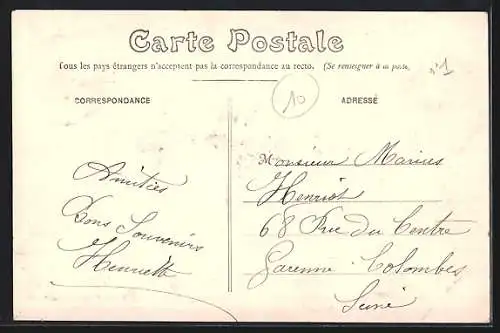 Carte Postale
Tous les pays étrangers n'acceptent pas la correspondance au recto. (Se renseigner à la poste)
n°1
CORRESPONDANCE
10
ADRESSE
Amitiés
Bons Souvenirs
Henriette
Monsieur Marius
Henriot
68 Rue du Centre
Garenne Colombes
Seine